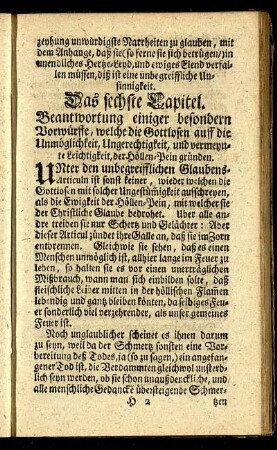 zeyhung unwürdigste Narrheiten zu glauben, mit
dem Anhange, daß sie, so ferne sie sich betrügen/ in
unendliches Hertze-Leyd, und ewiges Elend verfal-
len müssen, diß ist eine unbegreiffliche Un-
sinnigkeit.
Das sechste Capitel.
Beantwortung einiger besondern
Vorwürffe, welche die Gottlosen auff die
Unmöglichkeit, Ungerechtigkeit, und vermeyn-
te Leichtigkeit, der Höllen-Pein gründen.
UNter den unbegreifflichen Glaubens-
Articuln ist sonst keiner, wieder welchen die
Gottlosen mit solcher Ungestümigkeit aufschreyen,
als die Ewigkeit der Höllen-Pein, mit welcher sie
der Christliche Glaube bedrohet. Uber alle an-
dre treiben sie nur Schertz und Gelächter: Aber
dieser Articul zündet ihre Galle an, daß sie im Zorn
entbrennen. Gleichwie sie sehen, daß es einen
Menschen unmöglich ist, allhier lange im Feuer zu
leben, so halten sie es vor einen unerträglichen
Mißbrauch, wann man sich einbilden solte, daß
fleischliche Cörper mitten in der höllischen Flamen
lebendig und gantz bleiben könten, da selbiges Feu-
er sonderlich viel verzehrender, als unser gemeines
Feuer ist.
Noch unglaublicher scheinet es ihnen darum
zu seyn, weil da der Schmertz sonsten eine Vor-
bereitung deß Todes, ja (so zu sagen,) ein angefan-
gener Tod ist, die Verdammten gleichwol unsterb-
lich seyn werden, ob sie schon unaußdenckliche, und
alle menschliche Gedancke übersteigende Schmer-
H 2 tzen